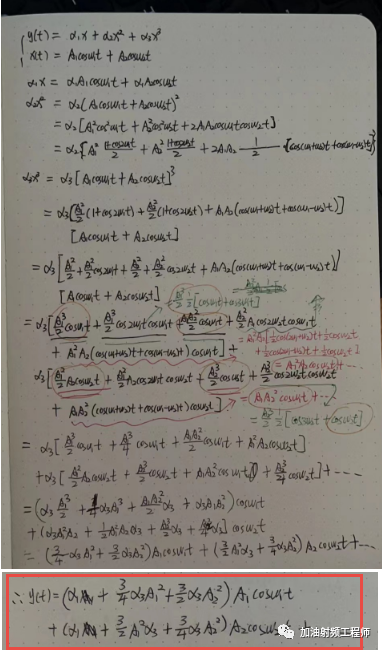 y(t) = α₁x + α₂x² + α₃x³
x(t) = A₁cosω₁t + A₂cosω₂t
α₁x = α₁A₁cosω₁t + α₁A₂cosω₂t
α₂x² = α₂(A₁cosω₁t + A₂cosω₂t)²
= α₂[A₁²cos²ω₁t + A₂²cos²ω₂t + 2A₁A₂cosω₁tcosω₂t]
= α₂{A₁² (1+cos2ω₁t)/2 + A₂² (1+cos2ω₂t)/2 + 2A₁A₂ 1/2 [cos(ω₁+ω₂)t + cos(ω₁-ω₂)t]}
α₃x³ = α₃[A₁cosω₁t + A₂cosω₂t]³
= α₃[A₁²/2 (1+cos2ω₁t) + A₂²/2 (1+cos2ω₂t) + A₁A₂(cos(ω₁+ω₂)t + cos(ω₁-ω₂)t)]
[A₁cosω₁t + A₂cosω₂t]
= α₃[A₁²/2 + A₁²/2 cos2ω₁t + A₂²/2 + A₂²/2 cos2ω₂t + A₁A₂(cos(ω₁+ω₂)t + cos(ω₁-ω₂)t)]
[A₁cosω₁t + A₂cosω₂t]
A₁³/2 1/2 [cos3ω₁t + cosω₁t]
= α₃[A₁³/2 cosω₁t + A₁³/2 cos2ω₁t cosω₁t + A₁A₂²/2 cosω₁t + A₂²/2 A₁cos2ω₂tcosω₁t
+ A₁²A₂(cos(ω₁+ω₂)t + cos(ω₁-ω₂)t) cosω₁t] +
= A₁²A₂cosω₂t + ...
α₃[A₁²/2 A₂cosω₂t + A₁²/2 A₂cos2ω₁t cosω₂t + A₂³/2 cosω₂t + A₂³/2 cos2ω₂t cosω₂t
+ A₁A₂²(cos(ω₁+ω₂)t + cos(ω₁-ω₂)t) cosω₂t] = A₁A₂²cosω₁t + ...
= A₂³/2 1/2 [cos3ω₂t + cosω₂t]
= α₃[A₁³/2 cosω₁t + A₁³/4 cosω₁t + A₁A₂²/2 cosω₁t + A₁²A₂cosω₂t]
+α₃[A₁²/2 A₂cosω₂t + A₂³/2 cosω₂t + A₁A₂²cosω₁t + A₂³/4 cosω₂t] + ....
= (α₃ A₁³/2 + 1/4 α₃A₁³ + A₁A₂²/2 α₃ + α₃A₁A₂²) cosω₁t
+ (α₃A₁²A₂ + 1/2 A₁²A₂α₃ + A₂³/2 α₃ + A₂³/4 α₃) cosω₂t
= (3/4 α₃A₁² + 3/2 α₃A₂²) A₁cosω₁t + (3/2 A₁²α₃ + 3/4 α₃A₂²) A₂cosω₂t + ...
∴ y(t) = (α₁ + 3/4 α₃A₁² + 3/2 α₃A₂²) A₁cosω₁t
+ (α₁ + 3/2 A₁²α₃ + 3/4 α₃A₂²) A₂cosω₂t +
加油射频工程师